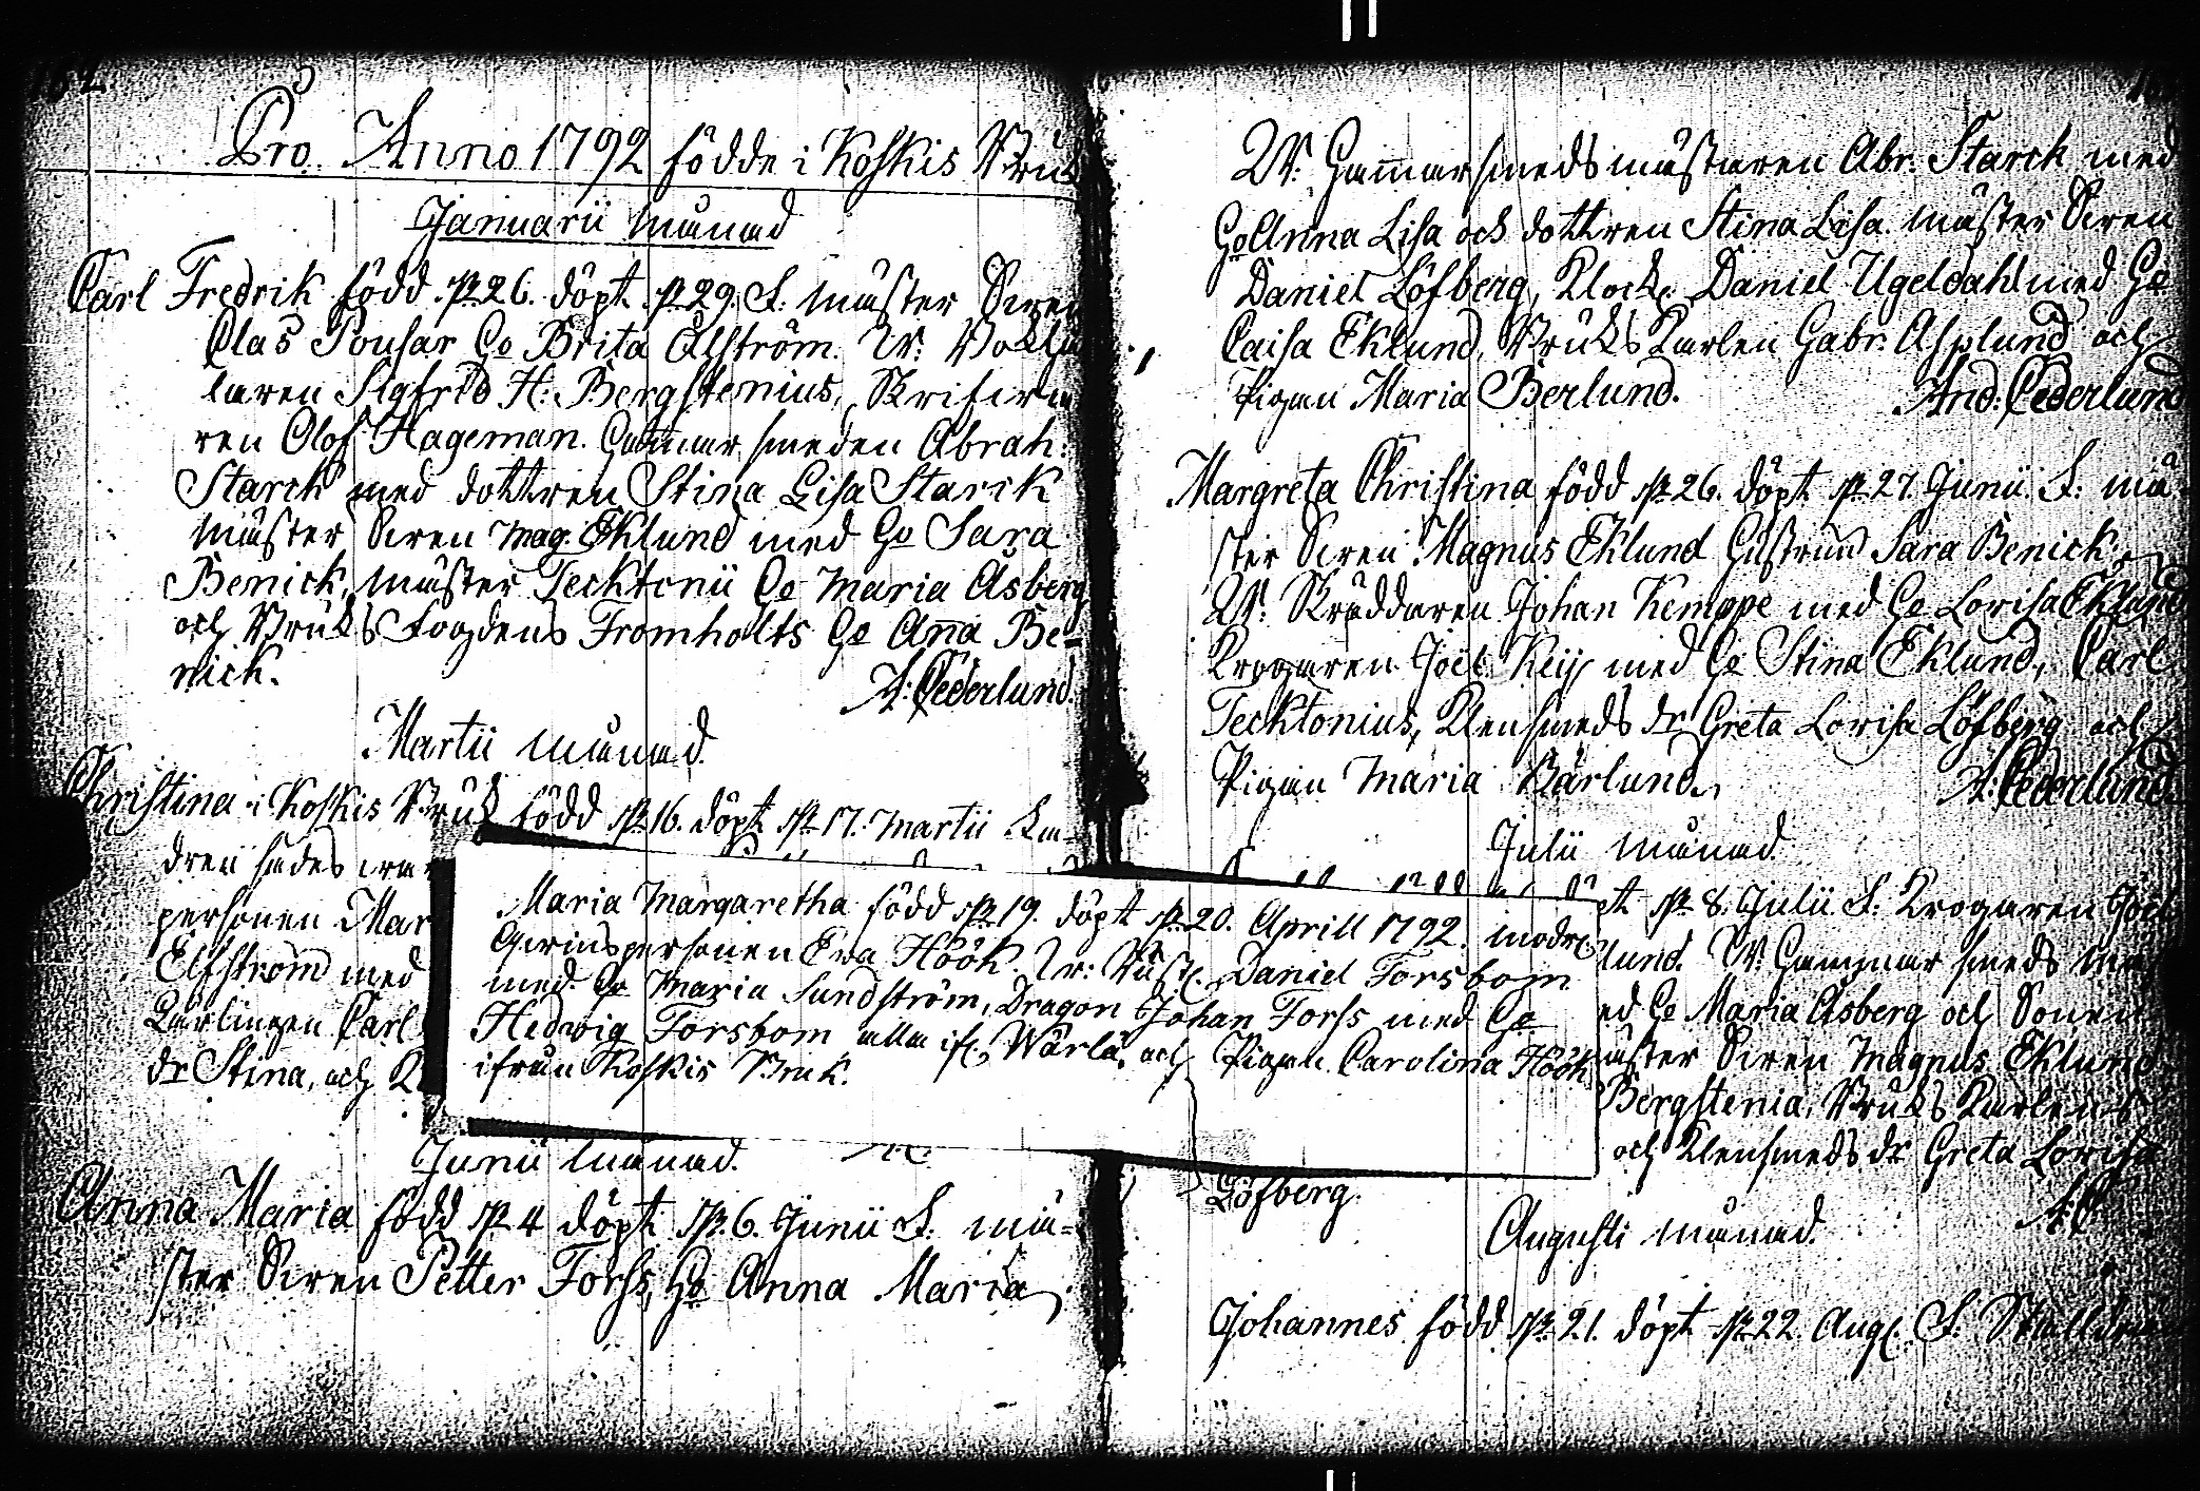 Pro. Anno 1792 födde i Koskis Bruk
Januarii månad
Carl Fredrik född d. 26. döpt d. 29. F: mäster Sven
Clas Ponsar Ho Brita Ahlström. W: Bokhål
laren Sigfrid H: Bergstenius, Skrifva
ren Olof Hageman. Hammarsmeden Abrah:
Starck med dottren Stina Lisa Starck
mäster Sven Mag. Eklund med Ho Sara
Benick, mäster Tecktonii Ho Maria Åsberg
och Bruks Fogdens Fromholts Ho Anna Be-
nick.
A: Cederlund.
Martii månad.
Christina i Koskis Bruk född d. 16. döpt d. 17. Martii
dren sades
personen Mar
Elfström med
Carl
dr Stina, och
Maria Margaretha född d. 19. döpt d. 20. Aprill 1792. modr.
personen Eva Höök. W: Daniel Forsbom
med Ho Maria Sundström, Dragon Johan Forss med Ho
Hedwig Forsbom alla if. Wärlä, och Pigan Carolina Höök
ifrån Koskis Bruk.
Junii månad.
Anna Maria född d. 4 döpt d. 6. Junii F: mä-
ster Sven Petter Forss, Ho Anna Maria
W: Hammarsmedsmästaren Abr. Starck med
Ho Anna Lisa och dottren Stina Lisa. mäster Sven
Daniel Löfberg, Klock. Daniel Ugeldahl med Ho
Caisa Eklund, Bruks Karlen Gabr. Asplund och
Pigan Maria Berlund.
And: Cederlund
Margreta Christina född d. 26. döpt d. 27. Junii. F: mä
ster Sven Magnus Eklund Hustrun Sara Benick.
W: Skräddaren Johan Kemppe med Ho Lovisa Eklund
Krogaren Joel Keij med Ho Stina Eklund, Carl
Tecktonius, Klensmeds dr Greta Lovisa Löfberg och
Pigan Maria Bärlund.
A: Cederlund.
Julii månad
d. 8. Julii F. Krogaren Joel
lund. W: Hammarsmeds
Ho Maria Åsberg och Sonen
Sven Magnus Eklund
Bergstenia, Bruks Karlens
och Klensmeds dr Greta Lovisa
Löfberg.
A: C
Augusti månad.
Johannes född d. 21. döpt d. 22. Aug. F: